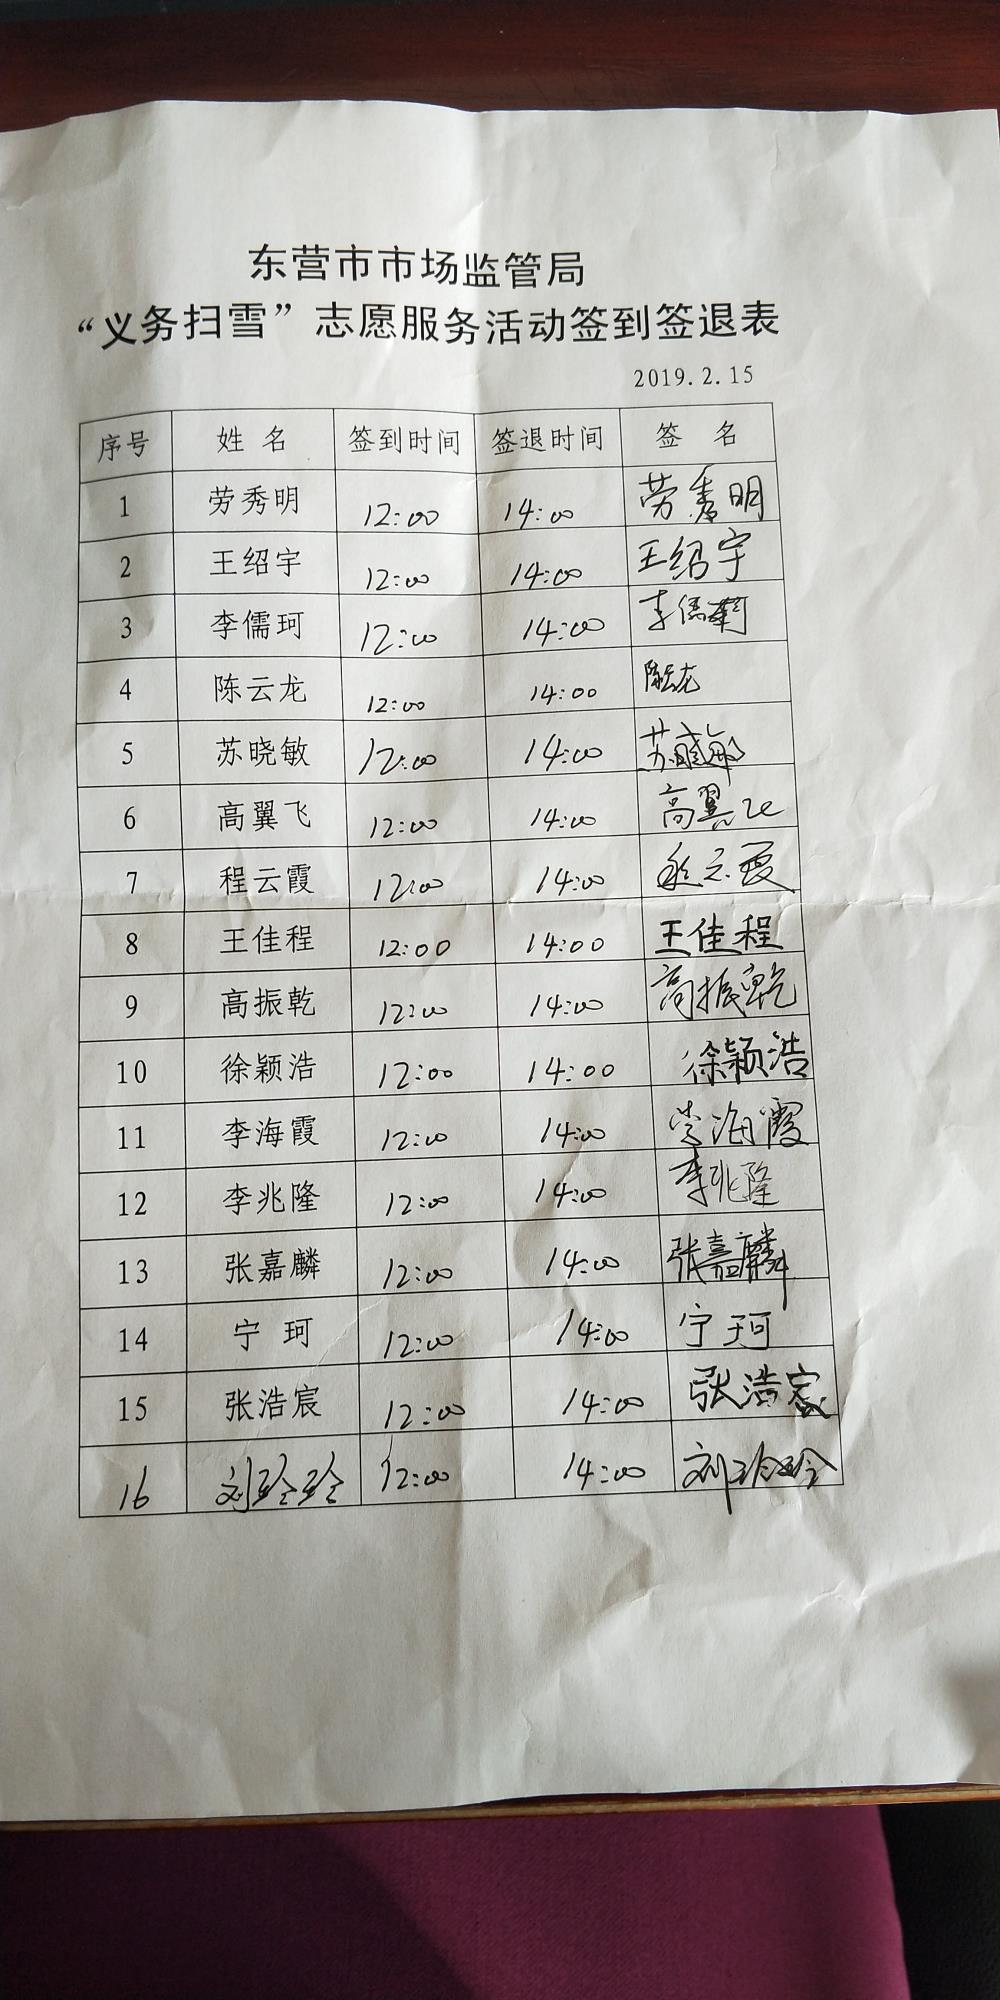 东营市市场监管局
“义务扫雪”志愿服务活动签到签退表
2019.2.15
序号 姓 名 签到时间 签退时间 签 名
1 劳秀明 12:00 14:00 劳秀明
2 王绍宇 12:00 14:00 王绍宇
3 李儒珂 12:00 14:00 李儒珂
4 陈云龙 12:00 14:00 陈云龙
5 苏晓敏 12:00 14:00 苏晓敏
6 高翼飞 12:00 14:00 高翼飞
7 程云霞 12:00 14:00 程云霞
8 王佳程 12:00 14:00 王佳程
9 高振乾 12:00 14:00 高振乾
10 徐颖浩 12:00 14:00 徐颖浩
11 李海霞 12:00 14:00 李海霞
12 李兆隆 12:00 14:00 李兆隆
13 张嘉麟 12:00 14:00 张嘉麟
14 宁 珂 12:00 14:00 宁珂
15 张浩宸 12:00 14:00 张浩宸
16 刘玲玲 12:00 14:00 刘玲玲